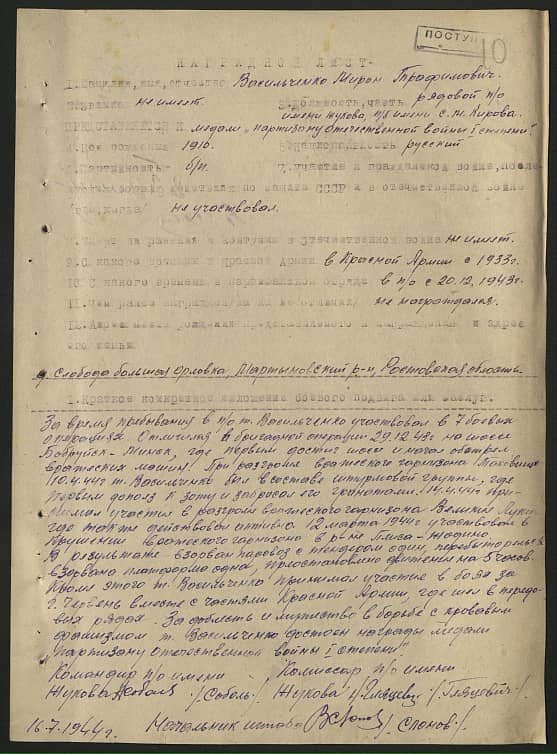 ПОСТУП
10
НАГРАДНОЙ ЛИСТ
1. Фамилия, имя, отчество Васильченко Мирон Трофимович
2. Звание не имеет. 3. Должность, часть рядовой п/о
имени Жукова, п/б имени С.М. Кирова.
ПРЕДСТАВЛЯЕТСЯ к медали "партизану отечественной войны I степени"
4. Год рождения 1910. 5. Национальность русский
6. Партийность б/п. 7. Участие в гражданской войне, после-
дующих боевых действиях по защите СССР и в отечественной войне
/где, когда/ не участвовал.
8. Имеет ли ранения и контузии в отечественной войне не имеет.
9. С какого времени в Красной Армии в Красной Армии с 1933г.
10. С какого времени в партизанском отряде в п/о с 20.12.1943г.
11. Чем ранее награжден /за какие отличия/ не награждался.
12. адрес
его семьи
Слобода большая орловка, Мартыновский р-н, Ростовская область.
1. Краткое конкретное изложение боевого подвига или заслуг.
За время пребывания в п/о т. Васильченко участвовал в 7 боевых
операциях. Отличился в бригадной операции 29.12.43г на шоссе
Бобруйск-Минск, где первым достиг шоссе и начал обстрел
вражеских машин. При разгроме вражеского гарнизона
10.4.44г т. Васильченко был в составе штурмовой группы, где
первым дополз к дзоту и забросал его гранатами. 14.4.44г при-
нимал участие в разгроме вражеского гарнизона Великие Луки
где также действовал активно. 12 марта 1944г участвовал в
крушении вражеского в р-не Плиса-Жодино.
В результате взорван паровоз с тендером один,
взорвана платформа одна, приостановлено движение на 5 часов.
Кроме этого т. Васильченко принимал участие в боях за
г. Червень вместе с частями Красной Армии, где шел в передо-
вых рядах. За доблесть и мужество в борьбе с кровавым
фашизмом т. Васильченко достоен награды медали
"Партизану отечественной войны I степени"
Командир п/о имени Комиссар п/о имени
Жукова /Соболь/ Жукова /Гляцевич/
16.7.1944г. Начальник штаба /Сломов/